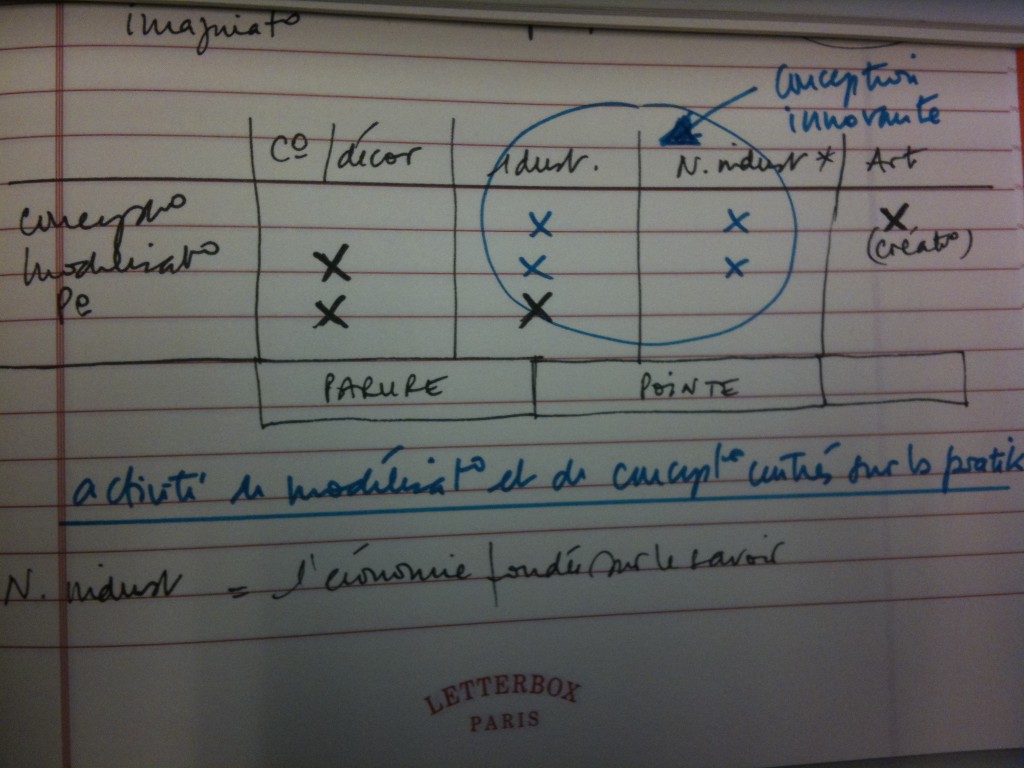 imaginatº
conception
innovante
Cº/décor idust. N. indust * Art
conceptº x x X
modélisatº X x x (créatº)
Pe X X
PARURE POINTE
activité de modélisatº et de concept centrés sur la pratik
N. indust = l'économie fondée sur le savoir
LETTERBOX
PARIS